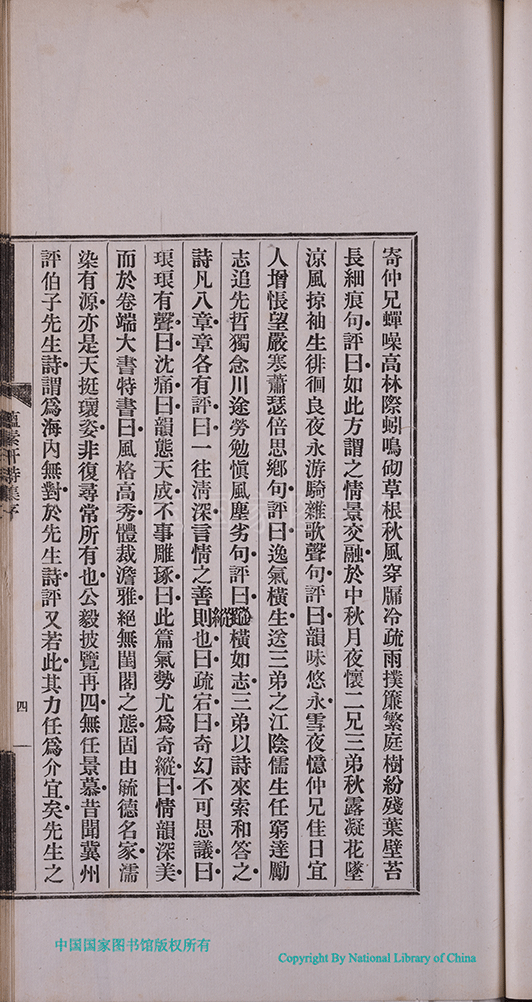 寄仲兄蟬噪高林際蚓鳴砌草根秋風穿牖冷疏雨撲簾繁庭樹紛殘葉壁苔
長細痕句評曰如此方謂之情景交融於中秋月夜懷二兄三弟秋露凝花墜
涼風掠袖生徘徊良夜永游騎雜歌聲句評曰韻味悠永雪夜憶仲兄佳日宜
人增悵望嚴寒蕭瑟倍思鄉句評曰逸氣橫生送三弟之江陰儒生任窮達勵
志追先哲獨念川途勞勉愼風塵劣句評曰縱橫如志三弟以詩來索和答之
詩凡八章章各有評曰一往淸深言情之善則也曰疏宕曰奇幻不可思議曰
琅琅有聲曰沈痛曰韻態天成不事雕琢曰此篇氣勢尤爲奇縱曰情韻深美
而於卷端大書特書曰風格高秀體裁澹雅絕無閨閣之態固由毓德名家濡
染有源亦是天挺瓌姿非復尋常所有也公毅披覽再四無任景慕昔聞冀州
評伯子先生詩謂爲海內無對於先生詩評又若此其力任爲介宜矣先生之
蘊素軒詩集序
四
中国国家图书馆版权所有
Copyright By National Library of China